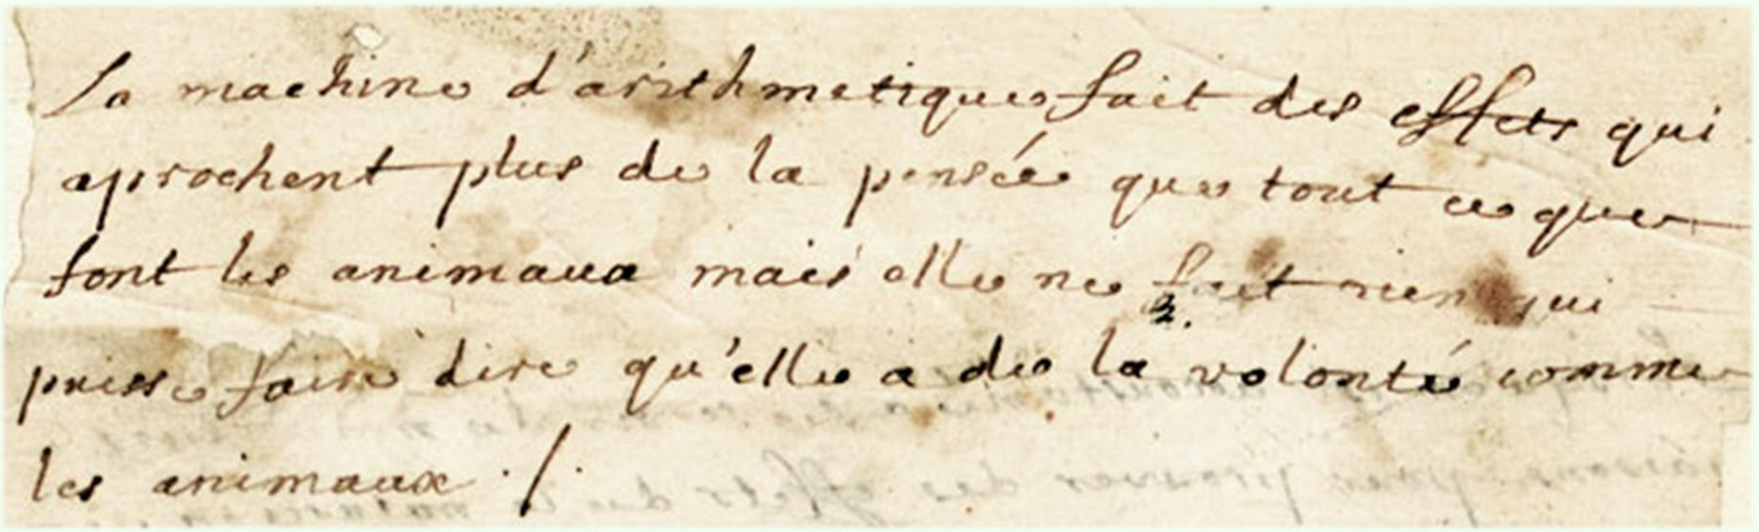 La machine d'arithmetique fait des effets qui
aprochent plus de la pensée que tout ce que
font les animaux mais elle ne fait rien qui
puisse faire dire qu'elle a de la volonté comme
les animaux ./.